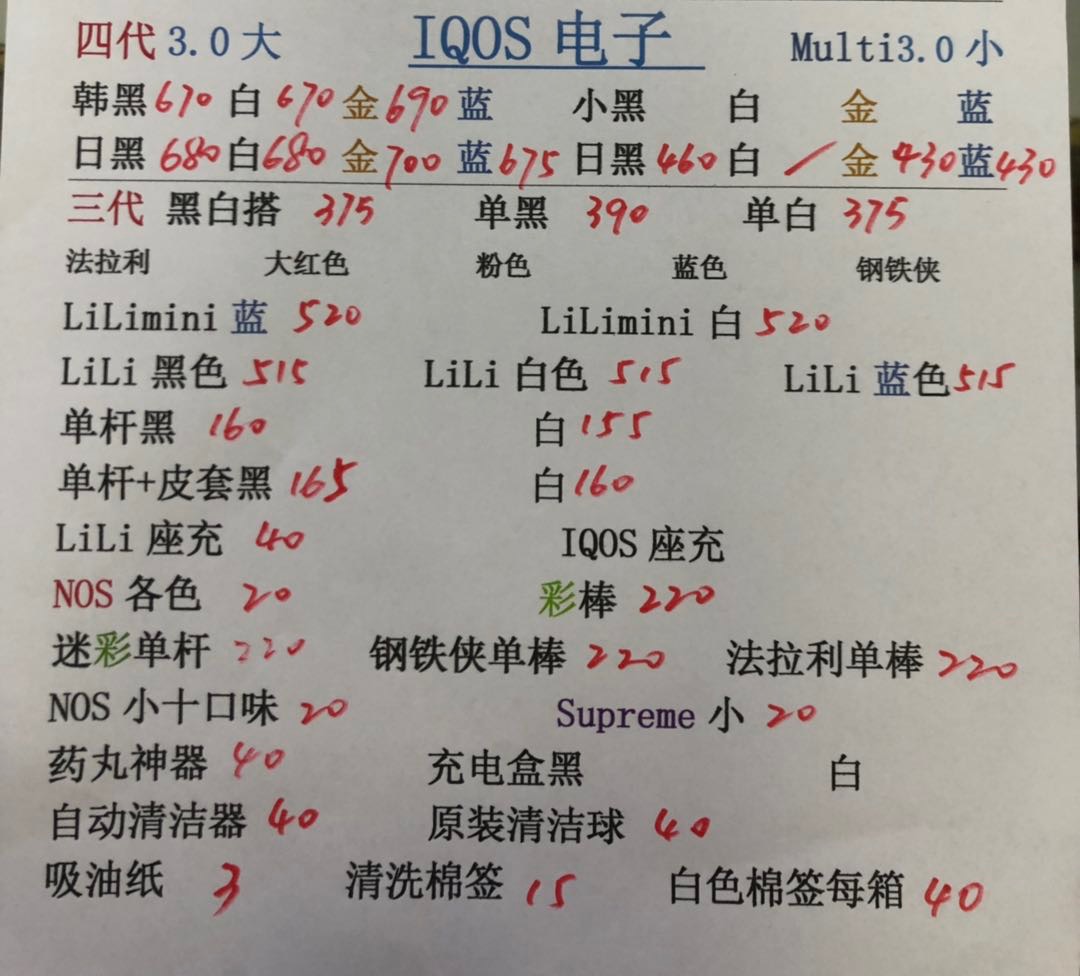 四代 3.0 大 IQOS 电子 Multi3.0 小
韩黑 670 白 670 金 690 蓝 小黑 白 金 蓝
日黑 680 白 680 金 700 蓝 675 日黑 460 白 / 金 430 蓝 430
三代 黑白搭 375 单黑 390 单白 375
法拉利 大红色 粉色 蓝色 钢铁侠
LiLimini 蓝 520 LiLimini 白 520
LiLi 黑色 515 LiLi 白色 515 LiLi 蓝色 515
单杆黑 160 白 155
单杆+皮套黑 165 白 160
LiLi 座充 40 IQOS 座充
NOS 各色 20 彩棒 220
迷彩单杆 220 钢铁侠单棒 220 法拉利单棒 220
NOS 小十口味 20 Supreme 小 20
药丸神器 40 充电盒黑 白
自动清洁器 40 原装清洁球 40
吸油纸 3 清洗棉签 15 白色棉签每箱 40